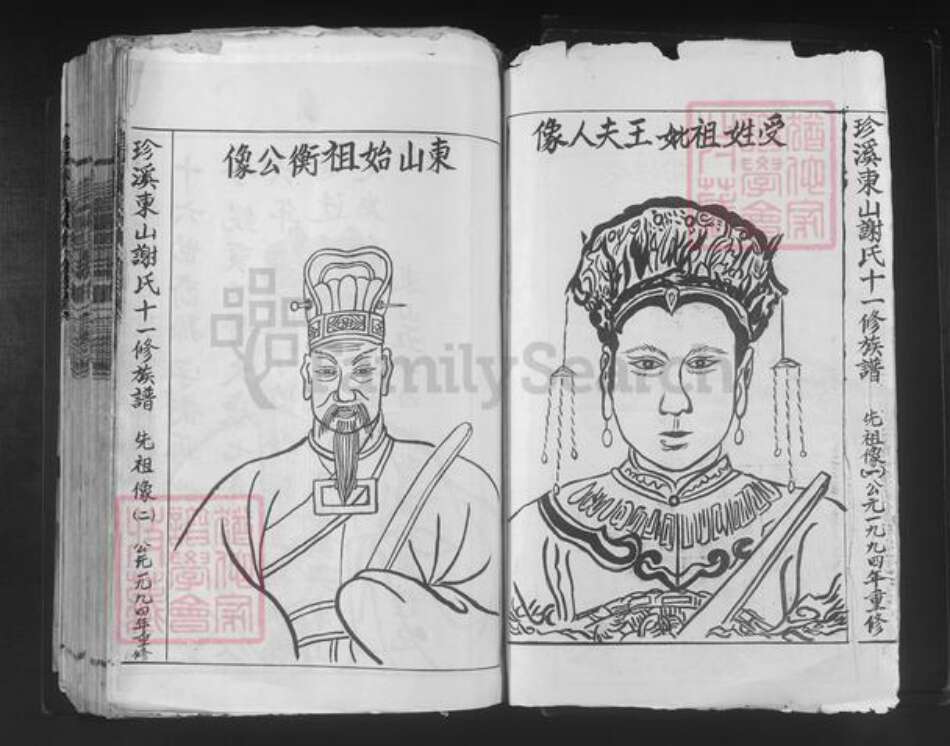 受姓祖妣王夫人像
珍溪東山謝氏十一修族譜 先祖像(一)公元一九九四年重修
東山始祖衡公像
珍溪東山謝氏十一修族譜 先祖像(二) 公元一九九四年重修
FamilySearch